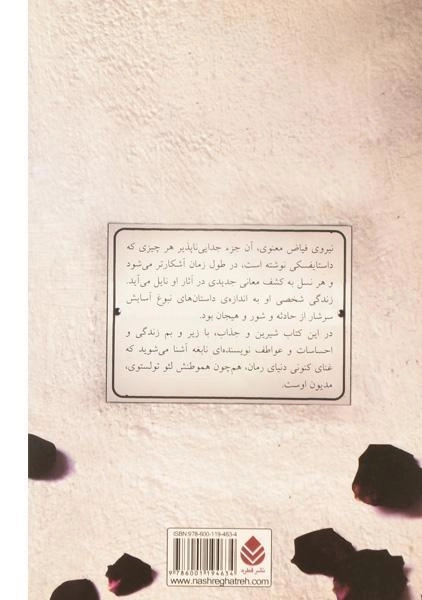 نیروی فیاض معنوی، آن جزء جدایی‌ناپذیر هر چیزی که
داستایفسکی نوشته است، در طول زمان آشکارتر می‌شود
و هر نسل به کشف معانی جدیدی در آثار او نایل می‌آید.
زندگی شخصی او به اندازه‌ی داستان‌های نبوغ آسایش
سرشار از حادثه و شور و هیجان بود.
در این کتاب شیرین و جذاب، با زیر و بم زندگی و
احساسات و عواطف نویسنده‌ای نابغه آشنا می‌شوید که
غنای کنونی دنیای رمان، هم‌چون هموطنش لئو تولستوی،
مدیون اوست.
ISBN:978-600-119-463-4
9 786001 194634
نشر قطره
www.nashreghatreh.com